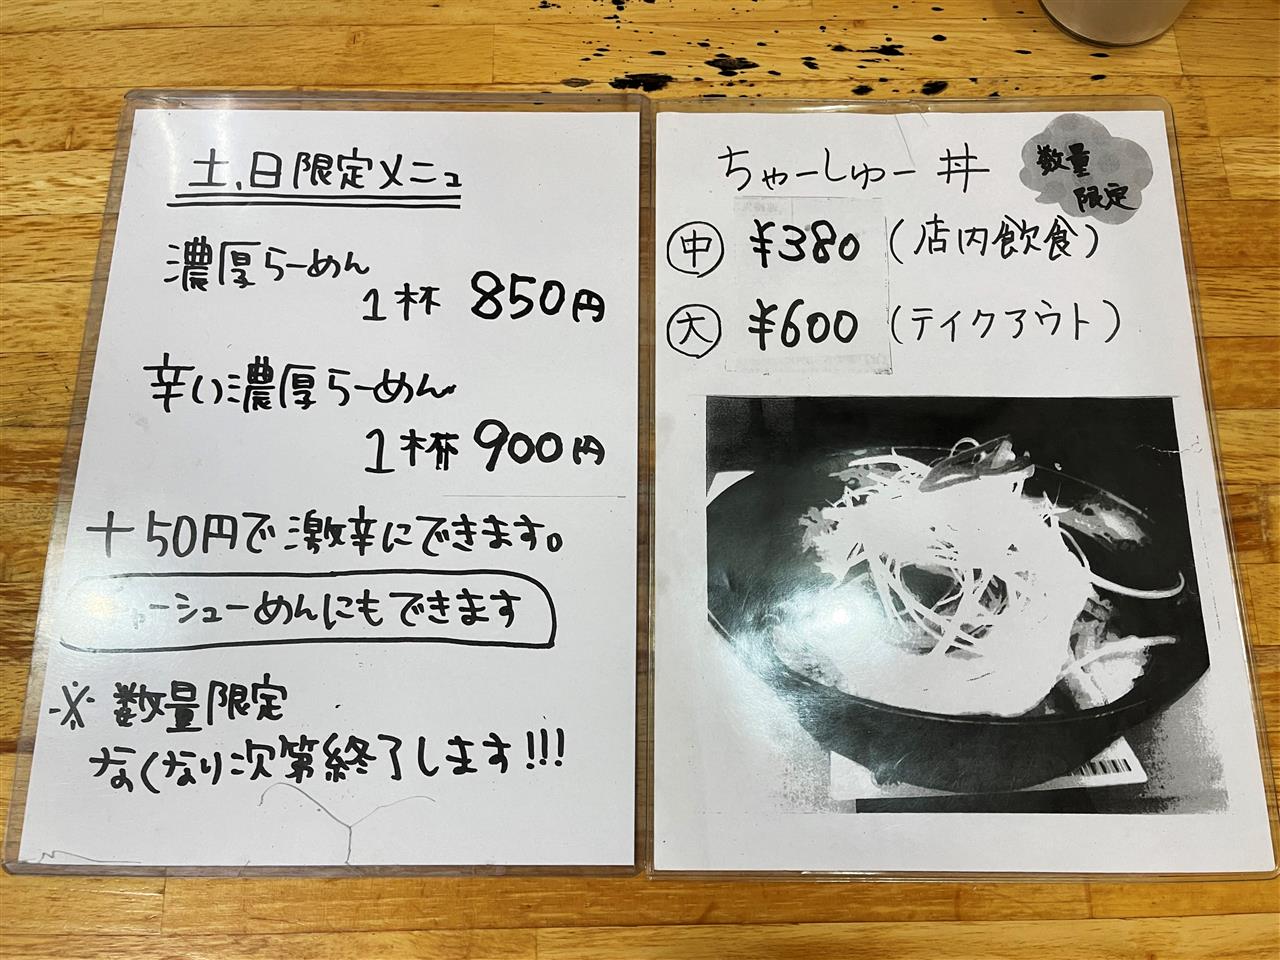 土,日限定メニュ
濃厚らーめん
1杯 850円
辛い濃厚らーめん
1杯 900円
+50円で激辛にできます。
ャーシューめんにもできます
※数量限定
なくなり次第終了します!!!
ちゃーしゅー丼
数量
限定
中 ¥380 (店内飲食)
大 ¥600 (テイクアウト)